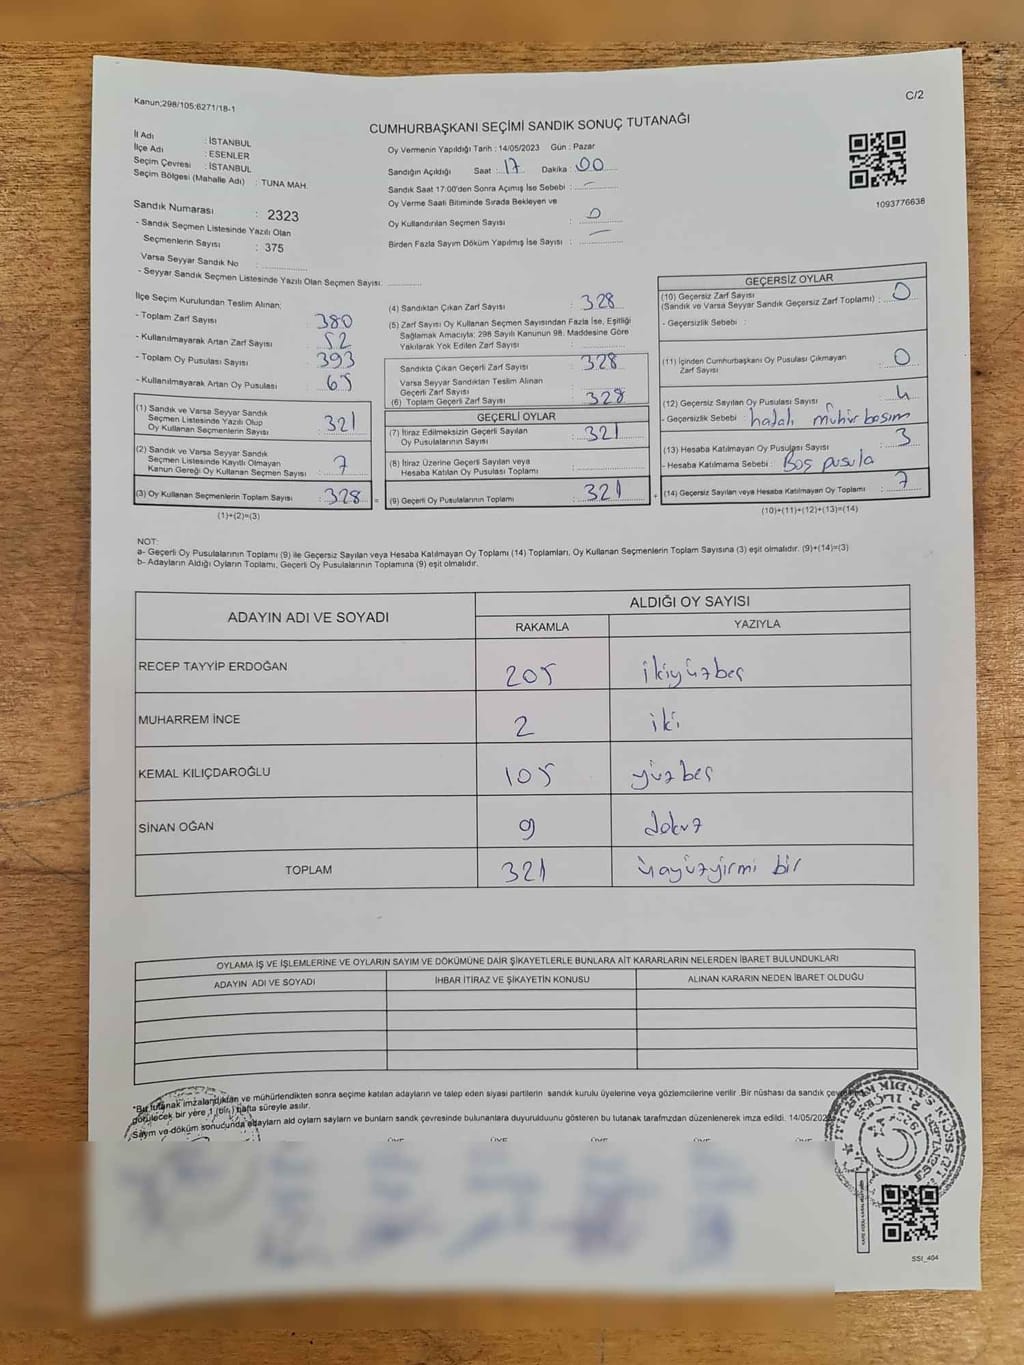 Kanun;298/105;6271/18-1
C/2
CUMHURBAŞKANI SEÇİMİ SANDIK SONUÇ TUTANAĞI
İl Adı : İSTANBUL
İlçe Adı : ESENLER
Seçim Çevresi : İSTANBUL
Seçim Bölgesi (Mahalle Adı) : TUNA MAH.
Sandık Numarası : 2323
- Sandık Seçmen Listesinde Yazılı Olan
Seçmenlerin Sayısı : 375
Varsa Seyyar Sandık No :
- Seyyar Sandık Seçmen Listesinde Yazılı Olan Seçmen Sayısı:
Oy Vermenin Yapıldığı Tarih : 14/05/2023 Gün : Pazar
Sandığın Açıldığı Saat : 17 Dakika : 00
Sandık Saat 17:00'den Sonra Açımış İse Sebebi : -
Oy Verme Saati Bitiminde Sırada Bekleyen ve
Oy Kullandırılan Seçmen Sayısı : 0
Birden Fazla Sayım Döküm Yapılmış İse Sayısı : -
1093776638
İlçe Seçim Kurulundan Teslim Alınan;
- Toplam Zarf Sayısı : 380
- Kullanılmayarak Artan Zarf Sayısı : 52
- Toplam Oy Pusulası Sayısı : 393
- Kullanılmayarak Artan Oy Pusulası : 65
(1) Sandık ve Varsa Seyyar Sandık
Seçmen Listesinde Yazılı Olup
Oy Kullanan Seçmenlerin Sayısı : 321
(2) Sandık ve Varsa Seyyar Sandık
Seçmen Listesinde Kayıtlı Olmayan
Kanun Gereği Oy Kullanan Seçmen Sayısı : 7
(3) Oy Kullanan Seçmenlerin Toplam Sayısı : 328 =
(1)+(2)=(3)
(4) Sandıktan Çıkan Zarf Sayısı : 328
(5) Zarf Sayısı Oy Kullanan Seçmen Sayısından Fazla İse, Eşitliği
Sağlamak Amacıyla; 298 Sayılı Kanunun 98. Maddesine Göre
Yakılarak Yok Edilen Zarf Sayısı :
Sandıkta Çıkan Geçerli Zarf Sayısı : 328
Varsa Seyyar Sandıktan Teslim Alınan
Geçerli Zarf Sayısı :
(6) Toplam Geçerli Zarf Sayısı : 328
GEÇERLİ OYLAR
(7) İtiraz Edilmeksizin Geçerli Sayılan
Oy Pusulalarının Sayısı : 321
(8) İtiraz Üzerine Geçerli Sayılan veya
Hesaba Katılan Oy Pusulası Toplamı :
(9) Geçerli Oy Pusulalarının Toplamı : 321 +
GEÇERSİZ OYLAR
(10) Geçersiz Zarf Sayısı
(Sandık ve Varsa Seyyar Sandık Geçersiz Zarf Toplamı) : 0
- Geçersizlik Sebebi :
(11) İçinden Cumhurbaşkanı Oy Pusulası Çıkmayan
Zarf Sayısı : 0
(12) Geçersiz Sayılan Oy Pusulası Sayısı : 4
- Geçersizlik Sebebi : hatalı mühür basım
(13) Hesaba Katılmayan Oy Pusulası Sayısı : 3
- Hesaba Katılmama Sebebi : Boş pusula
(14) Geçersiz Sayılan veya Hesaba Katılmayan Oy Toplamı : 7
(10)+(11)+(12)+(13)=(14)
NOT:
a- Geçerli Oy Pusulalarının Toplamı (9) ile Geçersiz Sayılan veya Hesaba Katılmayan Oy Toplamı (14) Toplamları, Oy Kullanan Seçmenlerin Toplam Sayısına (3) eşit olmalıdır. (9)+(14)=(3)
b- Adayların Aldığı Oyların Toplamı, Geçerli Oy Pusulalarının Toplamına (9) eşit olmalıdır.
ADAYIN ADI VE SOYADI ALDIĞI OY SAYISI
RAKAMLA YAZIYLA
RECEP TAYYİP ERDOĞAN 205 ikiyüzbeş
MUHARREM İNCE 2 iki
KEMAL KILIÇDAROĞLU 105 yüzbeş
SİNAN OĞAN 9 dokuz
TOPLAM 321 üçyüzyirmi bir
OYLAMA İŞ VE İŞLEMLERİNE VE OYLARIN SAYIM VE DÖKÜMÜNE DAİR ŞİKAYETLERLE BUNLARA AİT KARARLARIN NELERDEN İBARET BULUNDUKLARI
ADAYIN ADI VE SOYADI İHBAR İTİRAZ VE ŞİKAYETİN KONUSU ALINAN KARARIN NEDEN İBARET OLDUĞU
*Bu tutanak imzalandıktan ve mühürlendikten sonra seçime katılan adayların ve talep eden siyasi partilerin sandık kurulu üyelerine veya gözlemcilerine verilir .Bir nüshası da sandık
görülecek bir yere 1 (bir ) hafta süreyle asılır.
Sayım ve döküm sonucunda adayların ald oyların sayların ve bunların sandk çevresinde bulunanlara duyurulduunu gösteren bu tutanak tarafmzdan düzenlenerek imza edildi. 14/05/202
SSI_404